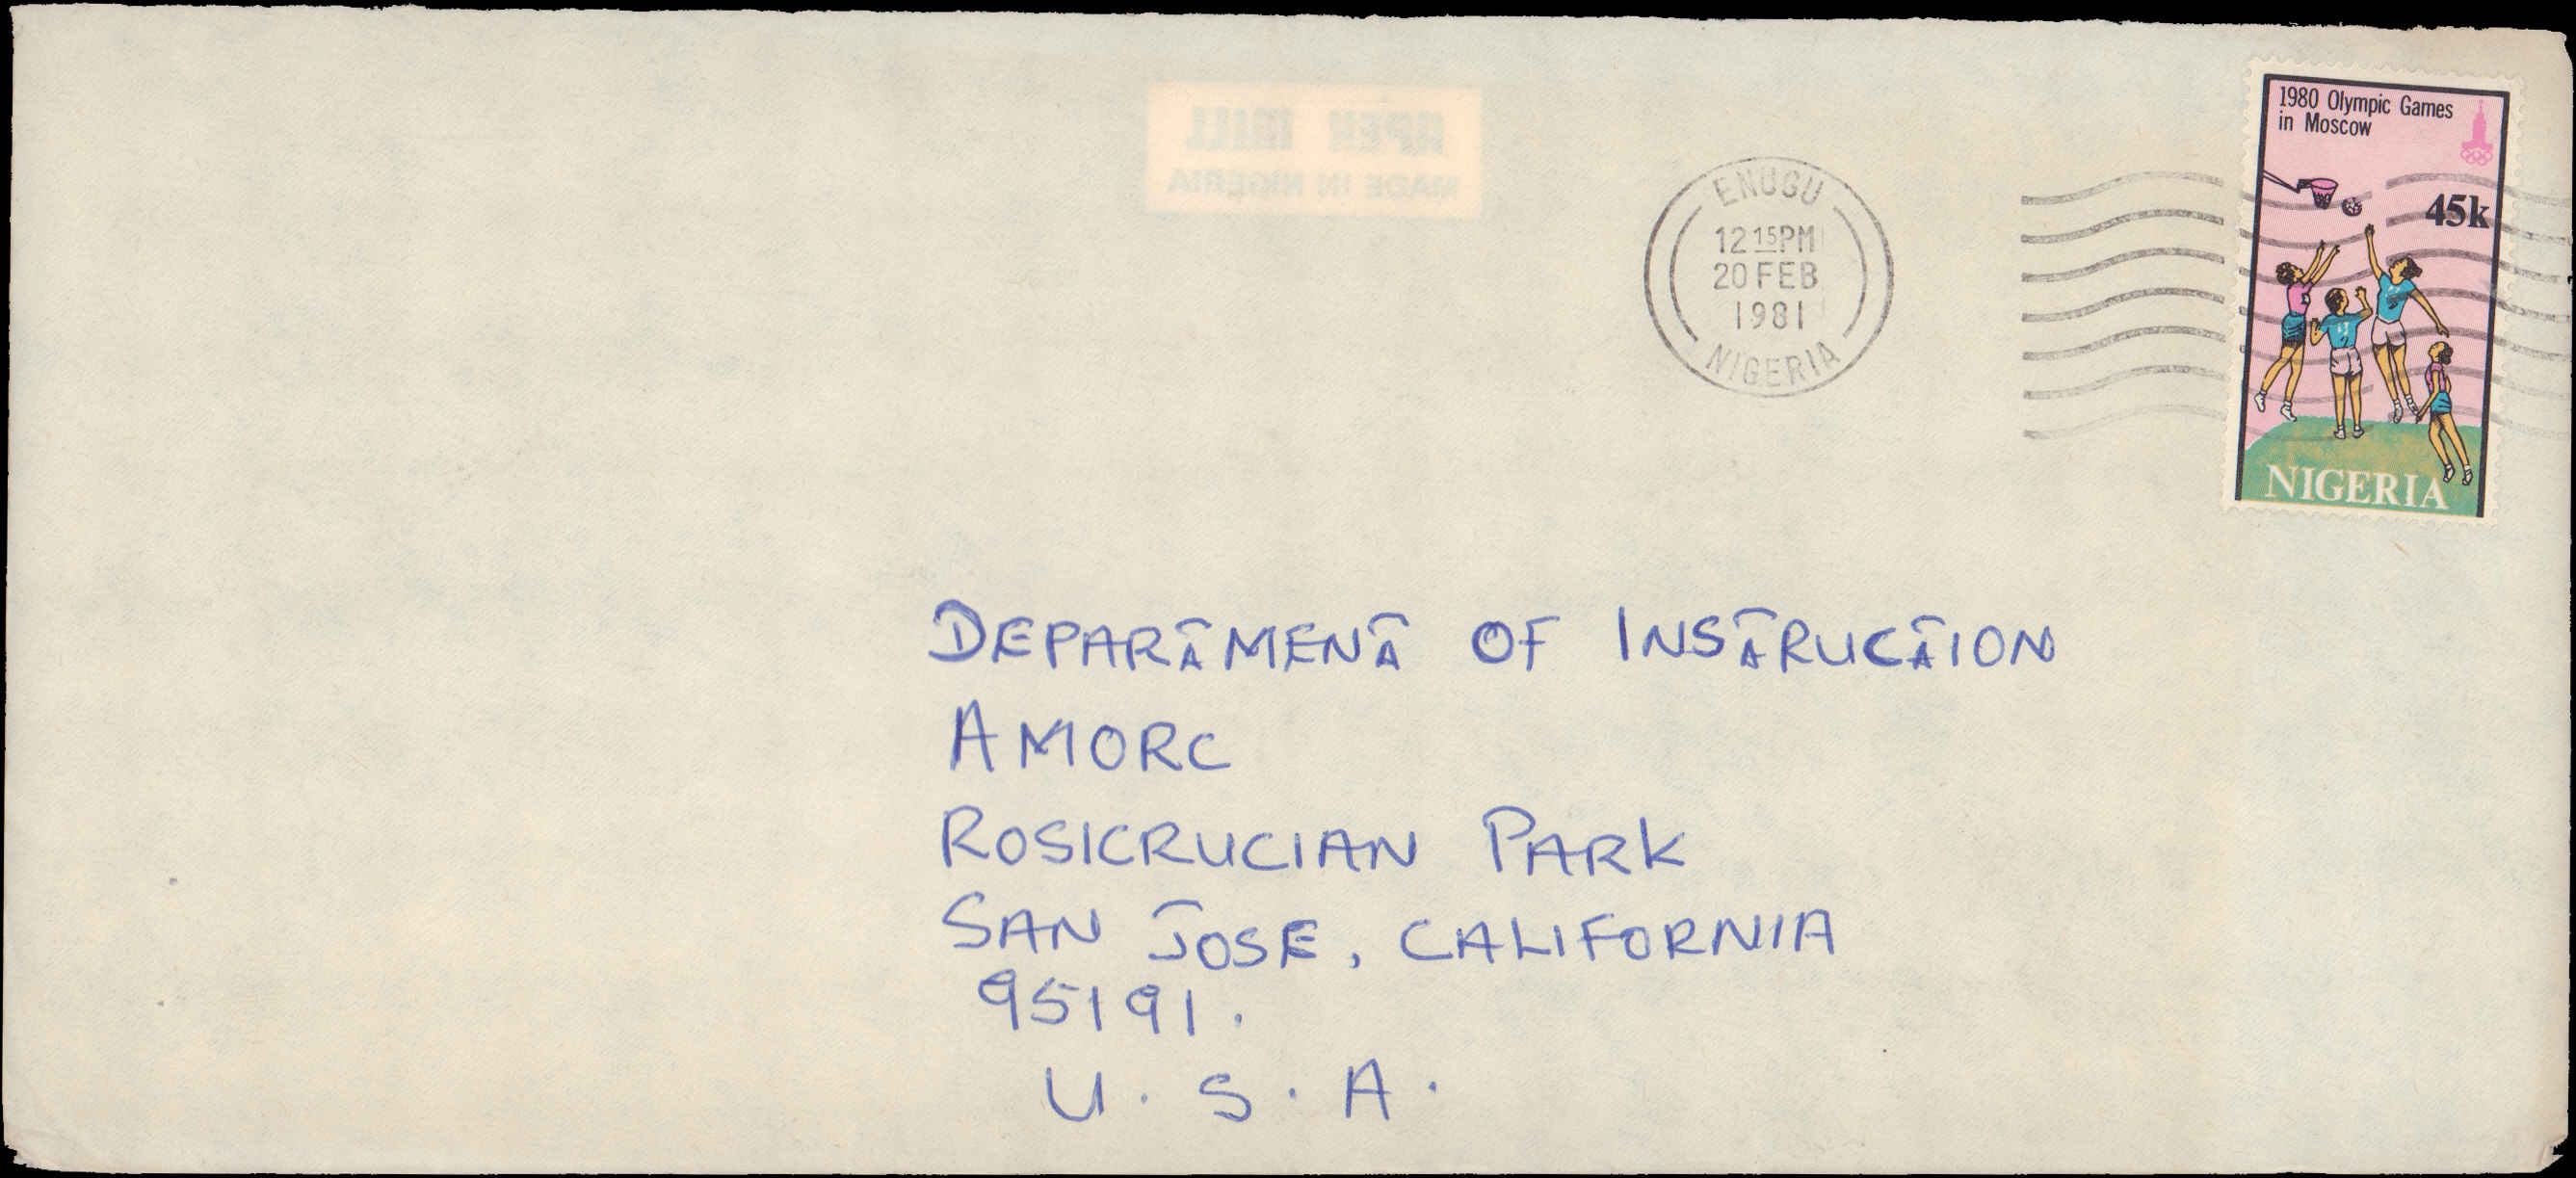 APER MILL
MADE IN NIGERIA
ENUGU
12 15PM
20 FEB
1981
NIGERIA
1980 Olympic Games
in Moscow
45k
NIGERIA
DEPARTMENT OF INSTRUCTION
AMORC
ROSICRUCIAN PARK
SAN JOSE, CALIFORNIA
95191.
U. S. A.